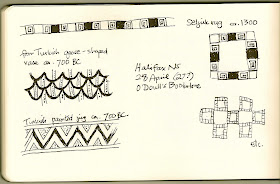 Seljuk rug ca. 1300
from Turkish goose-shaped
vase ca. 700 BC
Halifax NS
28 April (27?)
O'Doull's Bookstore
Turkish painted jug ca. 700 BC.
etc.